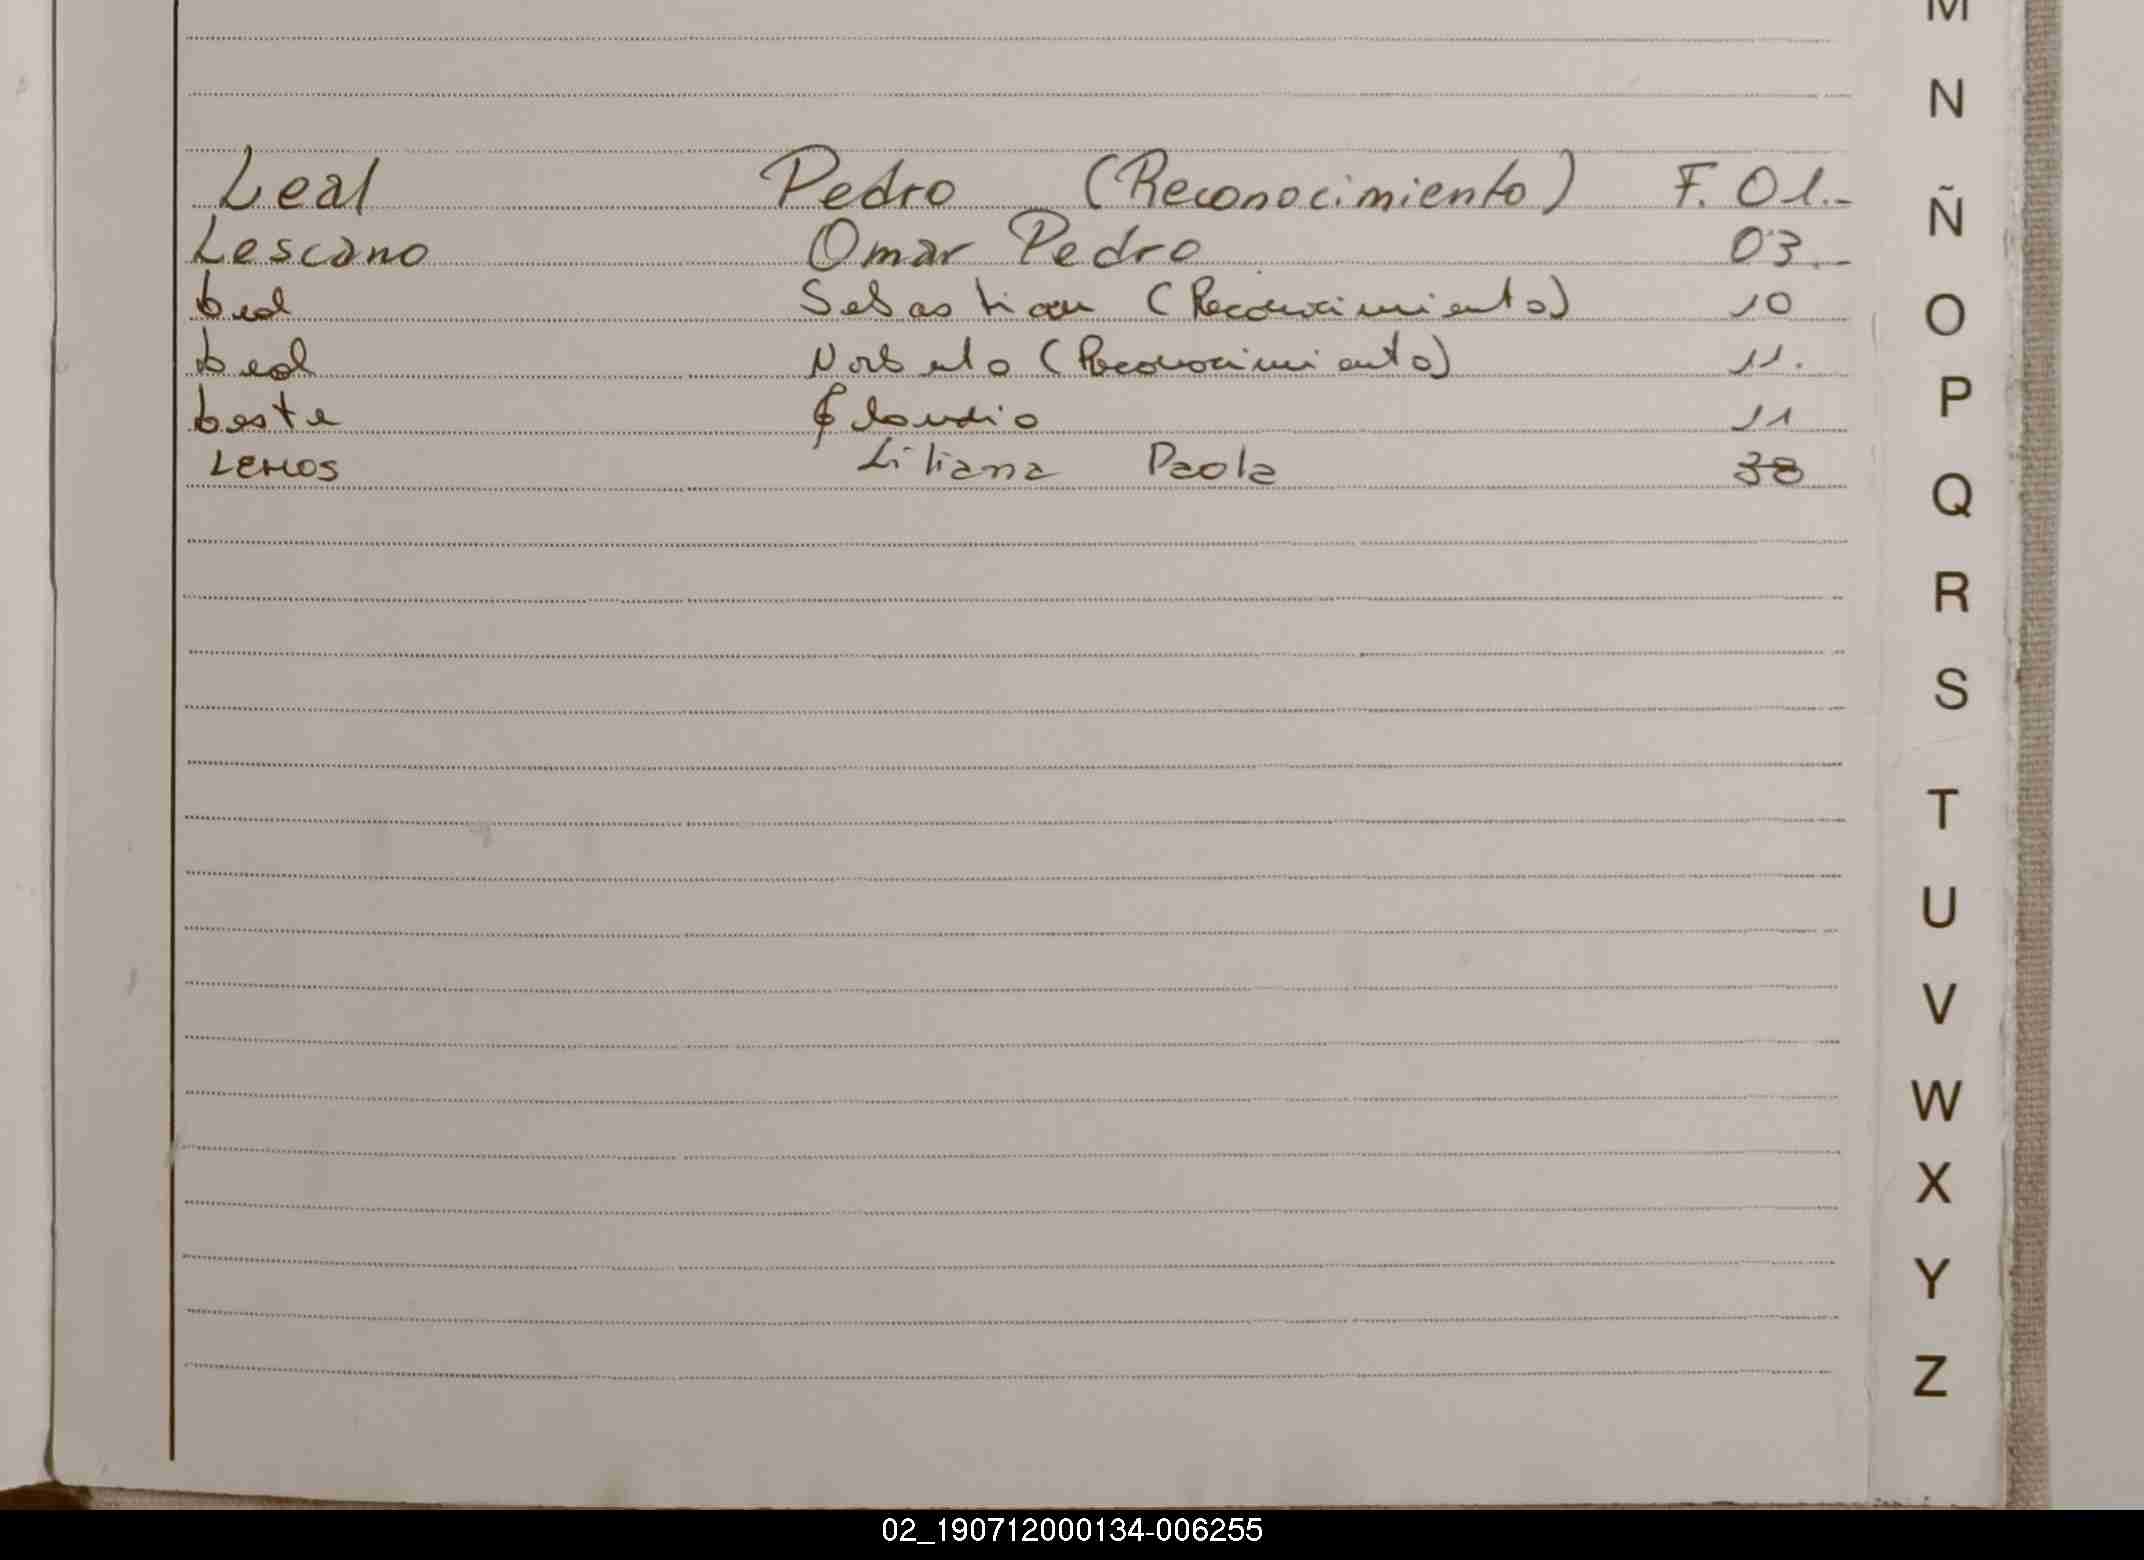 M
N
Ñ
O
P
Q
R
S
T
U
V
W
X
Y
Z
Leal Pedro (Reconocimiento) F. 01.-
Lescano Omar Pedro 03.-
Leal Sebastian (Reconocimiento) 10
Leal Norberto (Reconocimiento) 11.
Claudio 11
LEMOS Liliana Paola 38
02_190712000134-006255